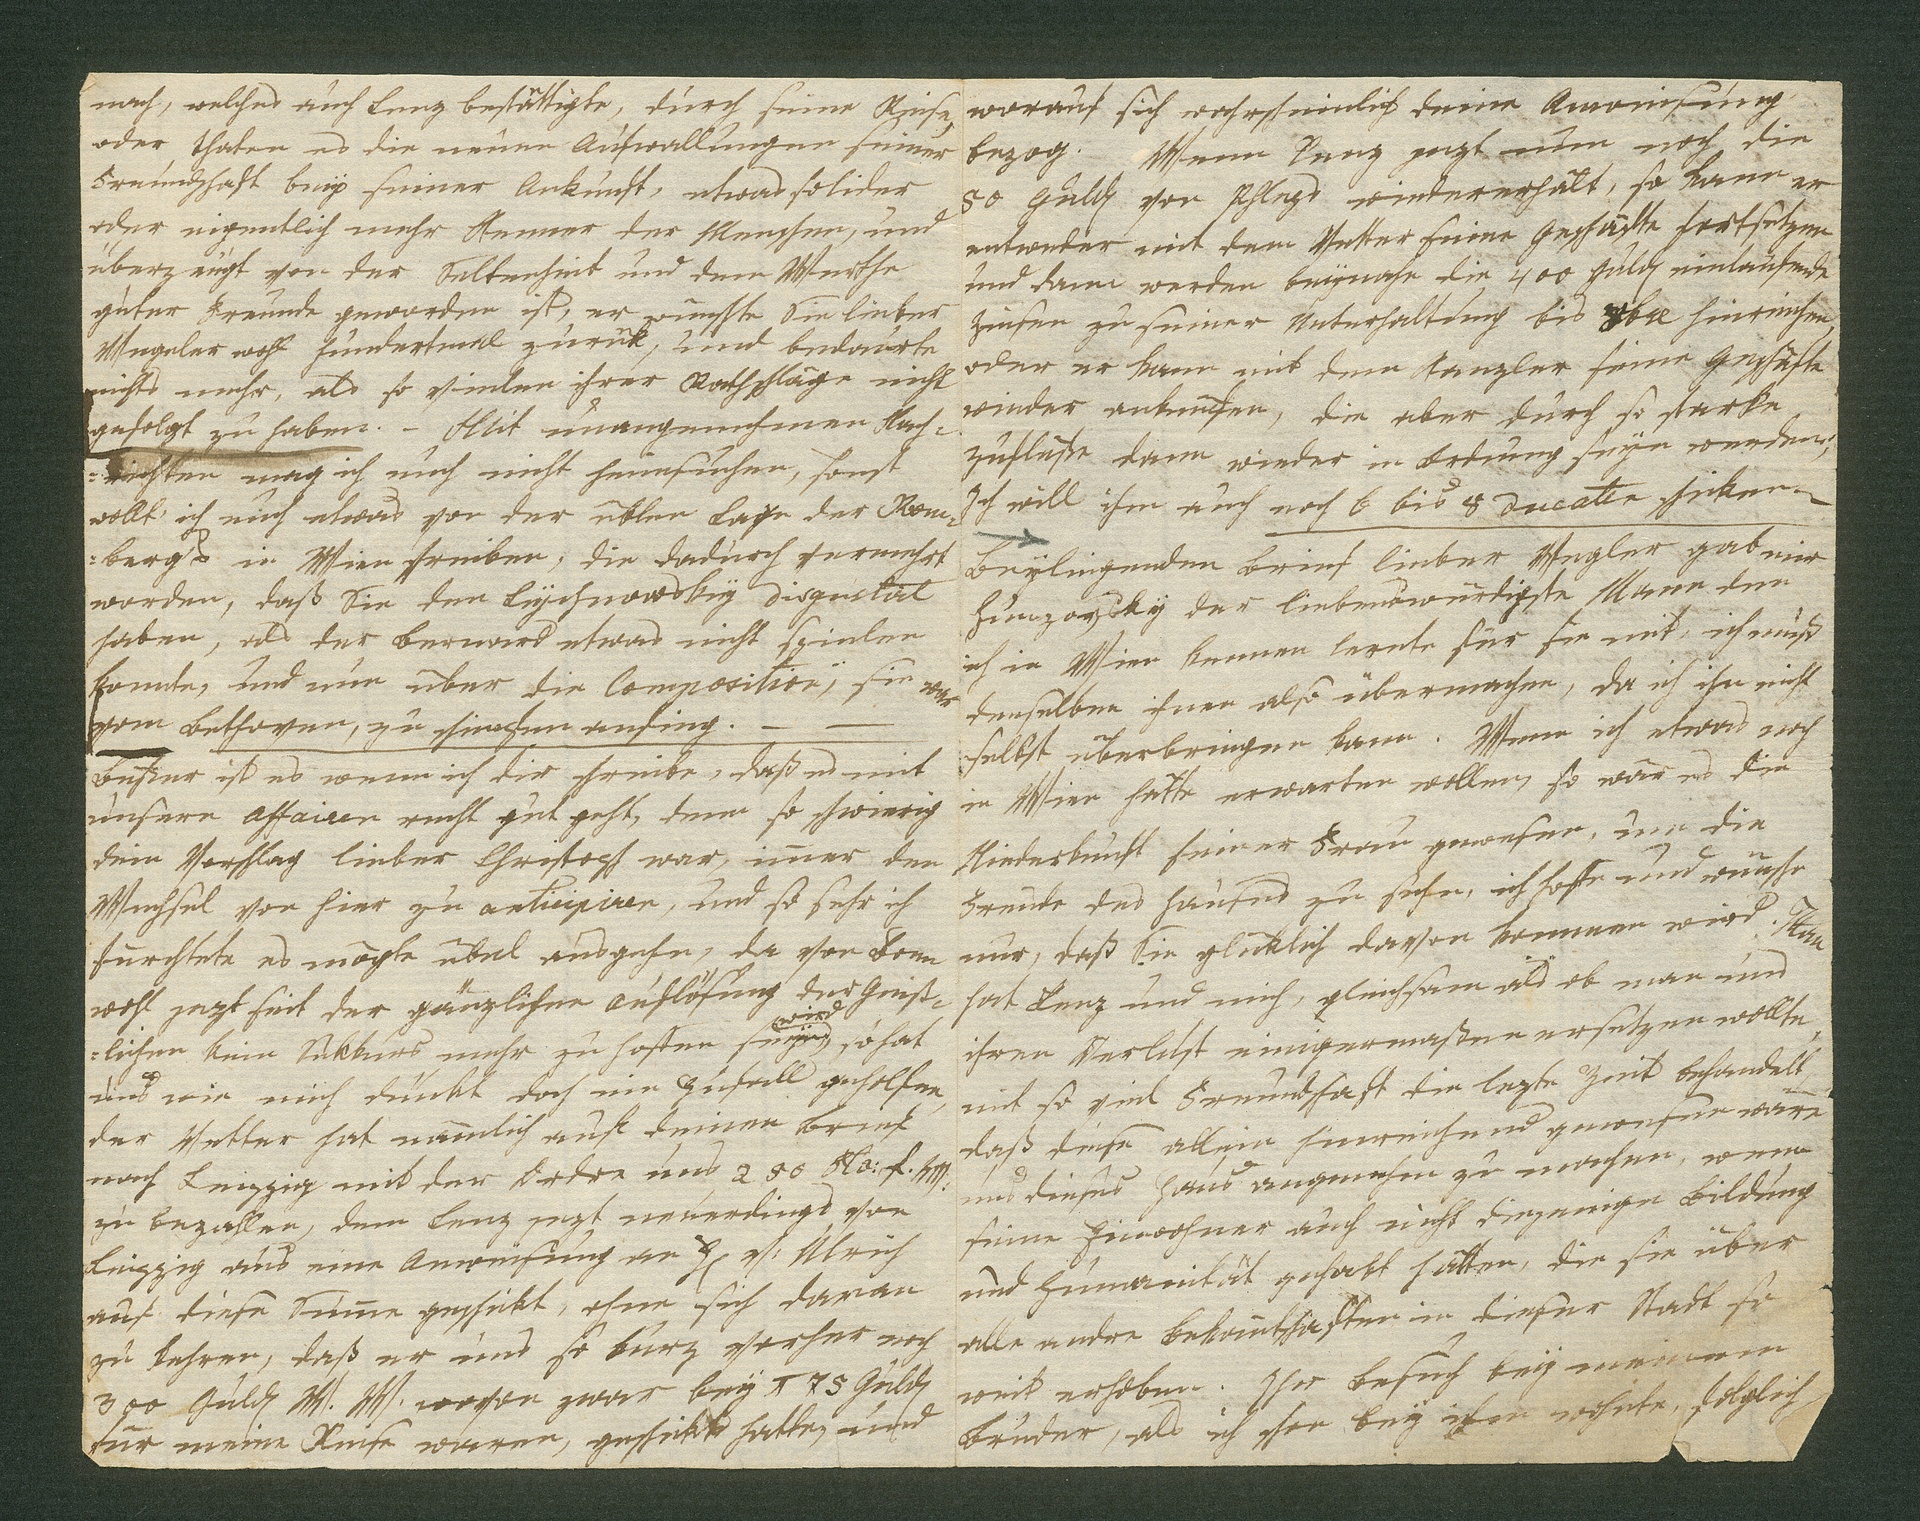 nach, welches auch Lenz bestättigte, durch seine Reise,
oder thaten es die neuen Aufwallungen seiner
Freundschaft beÿ seiner Ankunft, etwas solider
oder eigentlich mehr Kenner der Menschen, und
überzeugt von der Seltenheit und dem Werthe
guter Freunde geworden ist, er wünschte Sie lieber
Wegeler wohl hundertmal zurük, und bedaurte
nichts mehr, als so vielen ihrer Rathschläge nicht
gefolgt zu haben. – Mit unangenehmen Nach-
=richten mag ich euch nicht heimsuchen, sonst
wollt ich euch etwas von der üblen Lage der Rom-
=bergs in Wien schreiben, die dadurch vermehrt
worden, daß Sie den Lÿchnowskÿ disgustat
haben, als der Bernard etwas nicht spielen
konnte, und nun über die Composition, sie war
vom Bethoven, zu schimpfen anfing. — —
Beßer ist es wenn ich dir schreibe, daß es mit
unsern Affairen recht gut geht, denn so schwierig
dein Vorschlag lieber Christoph war, im̄er den
Wechsel von hier zu anticipiren, und so sehr ich
furchtete es mögte übel ausgehn, da von Bonn
wohl jezt seit der gänzlichen Auflösung der Geist-
=lichen kein Sukkurs mehr zu hoffen seÿn wird, so hat
uns wie mich dünkt doch ein Zufall geholfen,
der Vetter hat nämlich auf deinen Brief
nach Leipzig mit der Ordre uns 250 Flo: f. W.
zu bezahlen, dem Lenz jezt neuerdings von
Leipzig aus eine Anweisung an H v: Ulrich
auf diese Sum̄e geschickt, ohne sich daran
zu kehren, daß er uns so kurz vorher noch
300 Guld W. W. wovon zwar beÿ 175 Guld
für meine Reise waren, geschickt hatte, und
worauf sich wahrscheinlich deine Anweisung
bezog. Wenn Lenz jezt nun noch die
50 Guld von wiedererhält, so kann er
entweder mit dem Vetter seine Geschäfte fortsetzen
und dann werden beÿnahe die 400 Guld einlaufende
Zinsen zu seiner Unterhaltung bis 8bre hinreichen,
oder er kann mit dem Kanzler seine Geschäfte
wieder anknüpfen, die aber durch so starke
Zuflüße dann wieder in Ordnung seÿn werden,
Ich will ihm auch noch 6 bis 8 Ducaten schicken.—
Beÿliegenden Brief lieber Wegler gab mir
Hunzovskÿ der liebenswürdigste Mann den
ich in Wien kennen lernte für sie mit, ich muß
denselben ihnen also übermachen, da ich ihn nicht
selbst überbringen kann. Wenn ich etwas noch
in Wien hätte erwarten wollen, so wär es die
Niederkunft seiner Frau gewesen, um die
Freude des Hauses zu sehn, ich hoffe und wünsche
nur, daß Sie glüklich davon kommen wird. Man
hat Lenz und mich, gleichsam als ob man uns
ihren Verlust einigermaßen ersetzen wollte,
mit so viel Freundschaft die lezte Zeit behandelt,
daß diese allein hinreichend gewesen wäre
uns dieses Haus angenehm zu machen, wenn
seine Einwohner auch nicht diejenige Bildung
und Humanität gehabt hätten, die sie über
alle andre Bekan̄tschaften in dieser Stadt so
weit erhoben. Ihr Besuch beÿ meinem
Bruder, als ich schon beÿ ihm wohnte, folglich